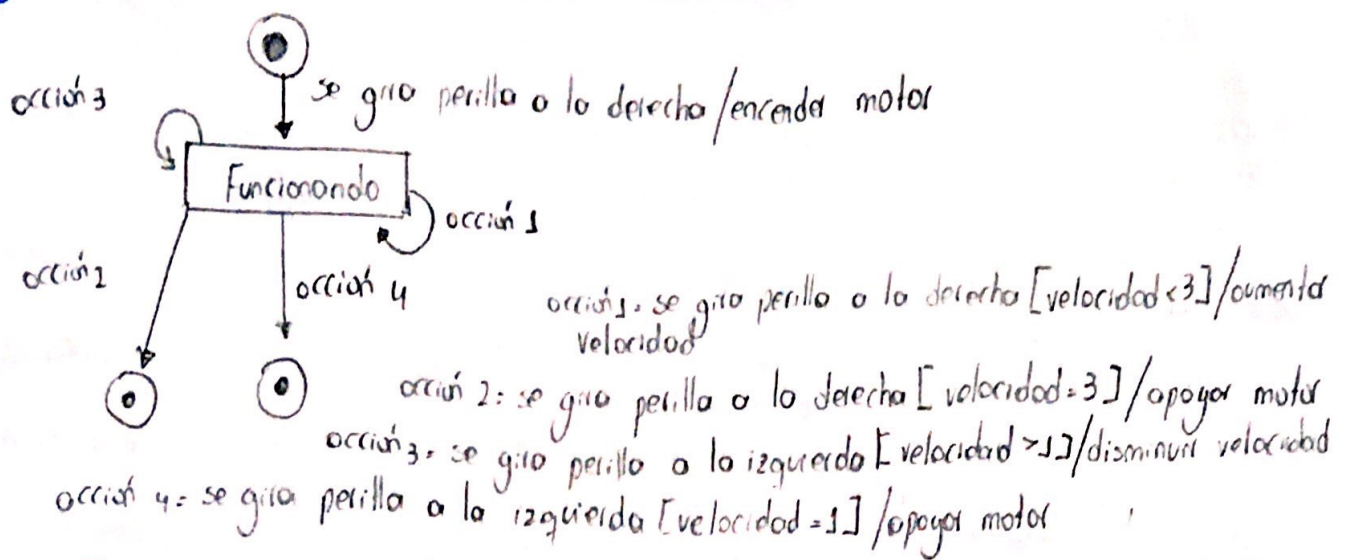 se gira perilla a la derecha/encender motor
acción 3
Funcionando
acción 1
acción 2
acción 4
acción 1: se gira perilla a la derecha [velocidad<3]/aumentar
velocidad
acción 2: se gira perilla a la derecha [velocidad=3]/apagar motor
acción 3: se gira perilla a la izquierda [velocidad >1]/disminuir velocidad
acción 4: se gira perilla a la izquierda [velocidad=1]/apagar motor